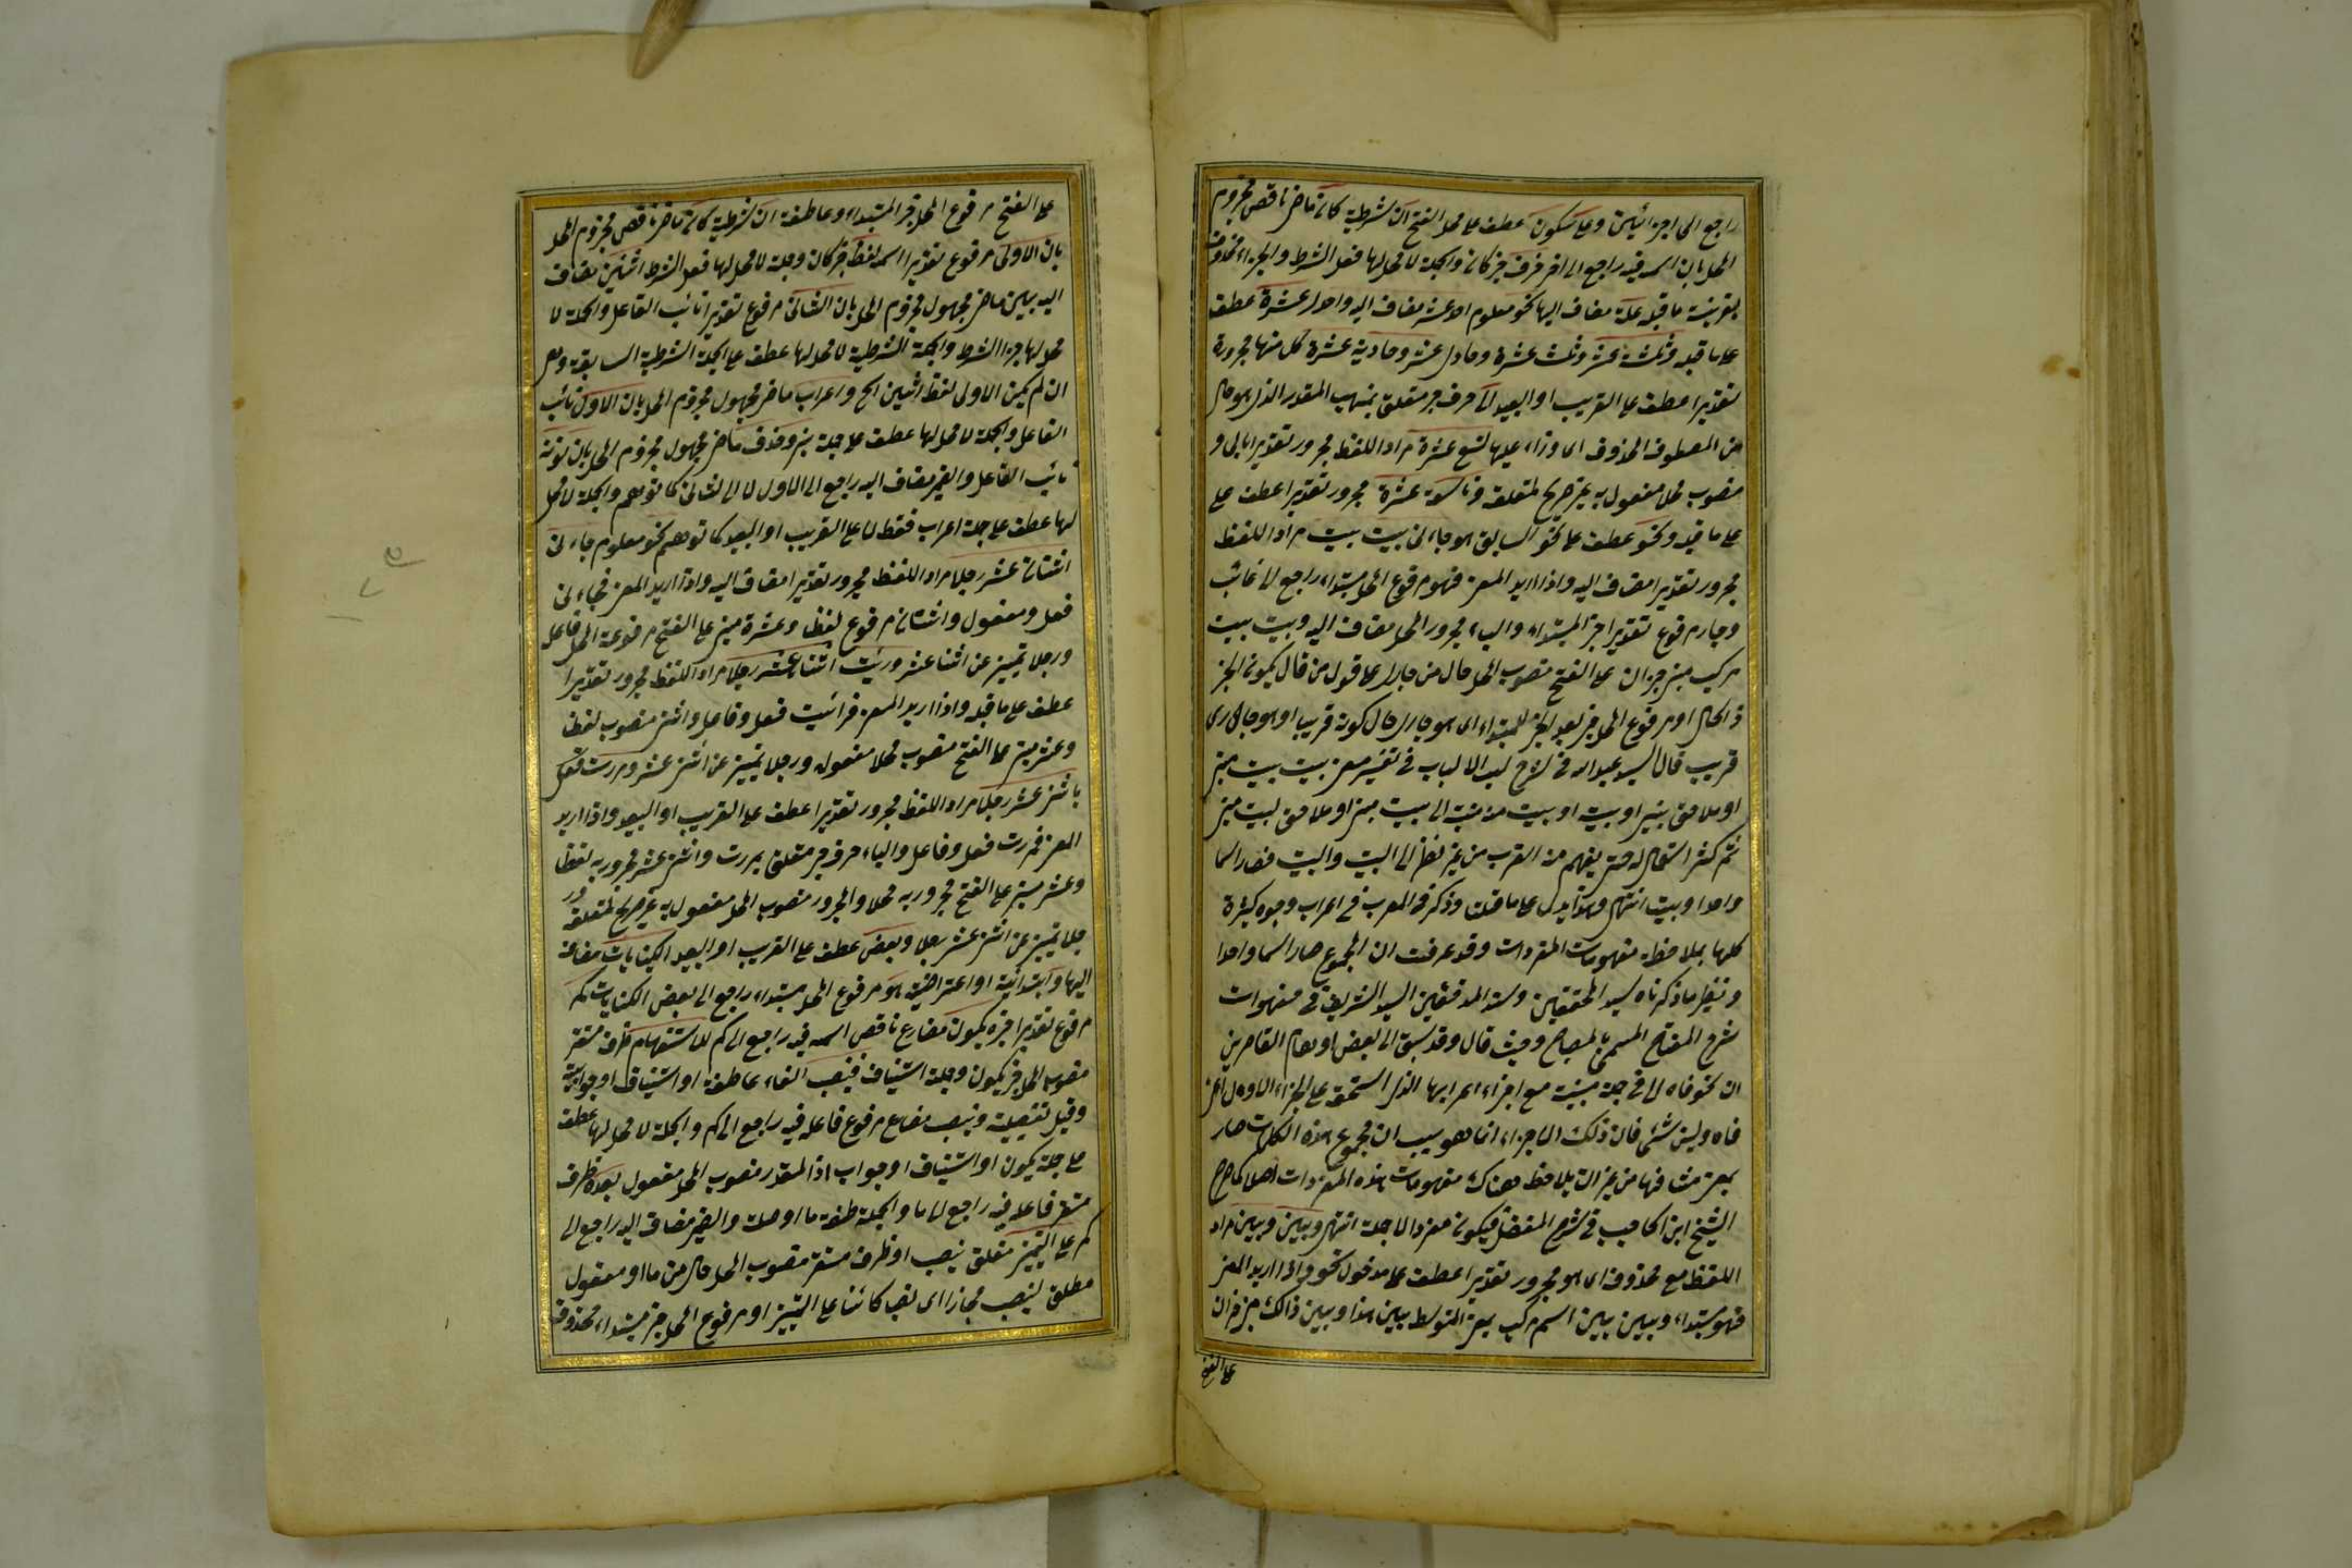 راجع الى اجزائين وعلى سكون عطف على محل الفتح ان شرطية كان ماض ناقص مجزوم
المحل بان اسمه فيه راجع الى اخر ظرف خبر كان والجملة لا محل لها فعل الشرط والجزاء محذوف
بقرينة ما قبله علة مضاف اليها نحو معلوم احد عشر مضاف اليه واحدى عشرة عطف
على ما قبله وثلثة عشر وثلث عشرة وحادى عشر وحادية عشرة كل منها مجرورة
تقديرا عطف على القريب او البعيد الى حرف جر متعلق بمنهب المقدر الذى هو حال
من المعطوف المحذوف اى وزاء عليها تسع عشرة مراد اللفظ مجرور تقديرا بالى و
منصوب محلا مفعول به غير صريح لمتعلقه وتاسعة عشرة مجرور تقديرا عطف على
على ما قبله ونحو عطف على نحو السابق هو جارى بيت بيت مراد اللفظ
مجرور تقديرا مضاف اليه واذا اريد المعنى فهو مرفوع المحل مبتداء راجع الى غائب
وجار مرفوع تقديرا خبر المبتداء والياء مجرور المحل مضاف اليه وبيت بيت
مركب مبنى جزان على الفتح منصوب المحل حال من جارى على قول من قال يكون الخبر
ذا الحال او مرفوع المحل خبر بعد الخبر للمبتداء اى هو جارى حال كونه قريبا او هو جارى
قريب قال السيد عبد الله فى شرح لب الالباب فى تفسير معنى بيت بيت
او ملاصق بيتى او بيته او بيت منه الى بيت او ملاصق لبيت
ثم كثر استعماله حتى يفهم منه القرب من غير نظر الى البيت والبيت فصار اسما
واحدا وبيت انتهى وهذا يدل على ما قلت وذكر فى المعرب فى اعراب وجوه كثيرة
كلها بملاحظة مفهومات المفردات وقد عرفت ان المجموع صار اسما واحدا
ونظير ما ذكرناه سيد المحققين وسند المدققين السيد الشريف فى منهوات
شرح المفتاح المسمى بالمصباح وحيث قال وقد سبق الى بعض اوهام القاصرين
ان نحو فاه الى فى جملة مبنية مع اجراء اعرابها الذى استحقه على الجزء الاول اعنى
فاه وليس بشئ فان ذلك الاجراء انما هو بسبب ان مجموع هذه الكلمات صار
بمعنى مشافها من غير ان يلاحظ هناك مفهومات هذه المفردات اصلا كما صرح
الشيخ ابن الحاجب فى شرح المفصل فيكون مفردا لا جملة انتهى وبين وبين مراد
اللفظ مع محذوف اى هو مجرور تقديرا عطف على مدخول نحو واذا اريد المعنى
فهو مبتداء وبين بين اسم مركب بمعنى المتوسط بين هذا وبين ذلك جزان
على الفتح
على الفتح مرفوع المحل خبر المبتداء وعاطفة ان شرطية كان ماض ناقص مجزوم المحل
بان الاولى مرفوع تقديرا اسمه لفظ خبر كان وجملة لا محل لها فعل الشرط اثنين مضاف
اليه بين ماض مجهول مجزوم المحل بان الثانى مرفوع تقديرا نائب الفاعل والجملة لا
محل لها جزاء الشرط والجملة الشرطية لا محل لها عطف على الجملة الشرطية السابقة
ان لم يكن الاولى لفظ اثنين الخ واعراب ماض مجهول مجزوم المحل بان الاول نائب
الفاعل والجملة لا محل لها عطف على جملة بنى وحذف ماض مجهول مجزوم المحل بان نونه
نائب الفاعل والضمير مضاف اليه راجع الى الاول لا الى الثانى كما توهم والجملة لا محل
لها عطف على جملة اعراب فقط لا على القريب او البعيد كما توهم نحو معلوم جاءنى
اثنان عشر رجلا مراد اللفظ مجرور تقديرا مضاف اليه واذا اريد المعنى فجاءنى
فعل ومفعول واثنان مرفوع لفظا وعشرة مبنى على الفتح مرفوعة المحل فاعل
ورجلا تمييز عن اثنا عشر ورئيت اثنا عشر رجلا مراد اللفظ مجرور تقديرا
عطف على ما قبله واذا اريد المعنى فرائيت فعل وفاعل واثنى منصوب لفظا
وعشر مبنى على الفتح منصوب محلا مفعوله ورجلا تمييز عن اثنى عشر ومررت فعل
باثنى عشر رجلا مراد اللفظ مجرور تقديرا عطف على القريب او البعيد واذا اريد
المعنى فمررت فعل وفاعل والباء حرف جر متعلق بمررت واثنى عشر مجرور به لفظا
وعشر مبنى على الفتح مجرور به محلا والمجرور منصوب المحل مفعول به غير صريح لمتعلقه
رجلا تمييز عن اثنى عشر رجلا وبعض عطف على القريب او البعيد الكنايات مضافة
اليها وابتدائية او اعتراضية هو مرفوع المحل مبتداء راجع الى بعض الكنايات كم
مرفوع تقديرا خبره يكون مضارع ناقص اسمه فيه راجع الى كم للاستفهام ظرف مستقر
منصوب المحل خبر يكون وجملة استيناف فينصب الفاء عاطفة او استيناف او جوابية
وقيل تفصيلية وينصب مضارع مرفوع فاعله فيه راجع الى كم والجملة لا محل لها عطف
على جملة يكون او استيناف او جواب اذا المقدر منصوب المحل مفعول بعده ظرف
مستقر فاعله فيه راجع الى ما والجملة صفة ما او صلة والضمير مضاف اليه راجع الى
كم على التمييز متعلق بنصب او ظرف مستقر منصوب المحل حال من ما او مفعول
مطلق لينصب مجازا اى نصبا كائنا على التمييز او مرفوع المحل خبر مبتداء محذوف